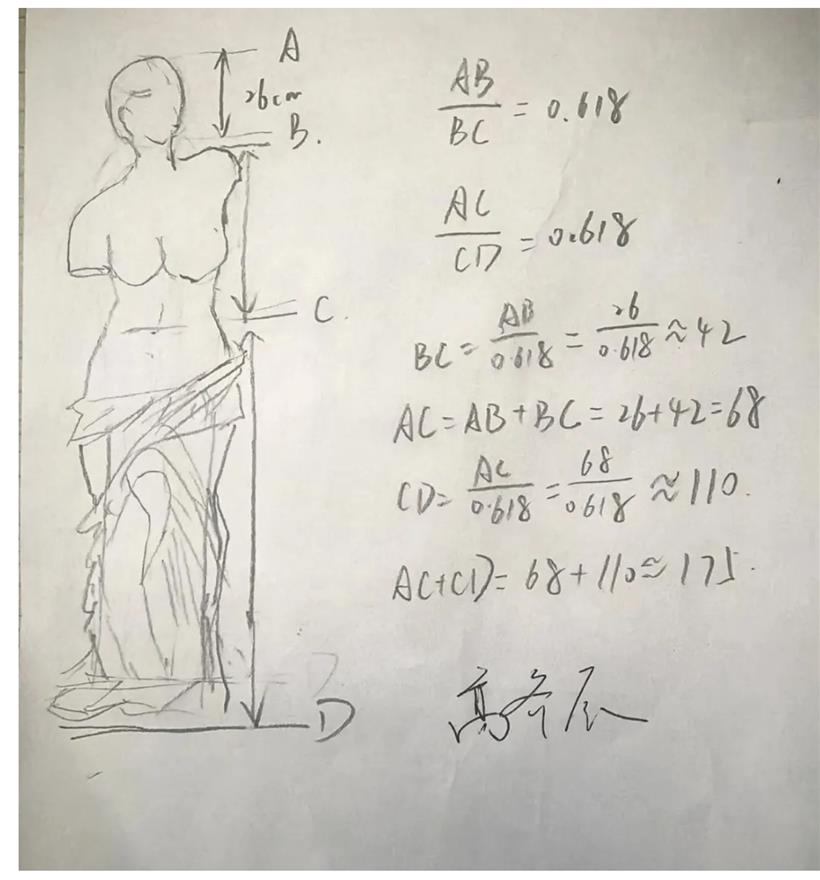 A
26cm
B.
C.
D
AB/BC = 0.618
AC/CD = 0.618
BC = AB/0.618 = 26/0.618 ≈ 42
AC = AB + BC = 26+42 = 68
CD = AC/0.618 = 68/0.618 ≈ 110.
AC+CD = 68+110 ≈ 175.